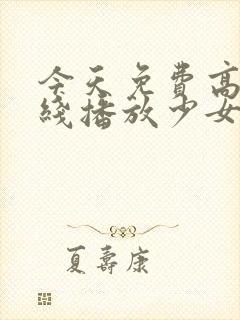 今天免费高
线播放少女
夏寿康